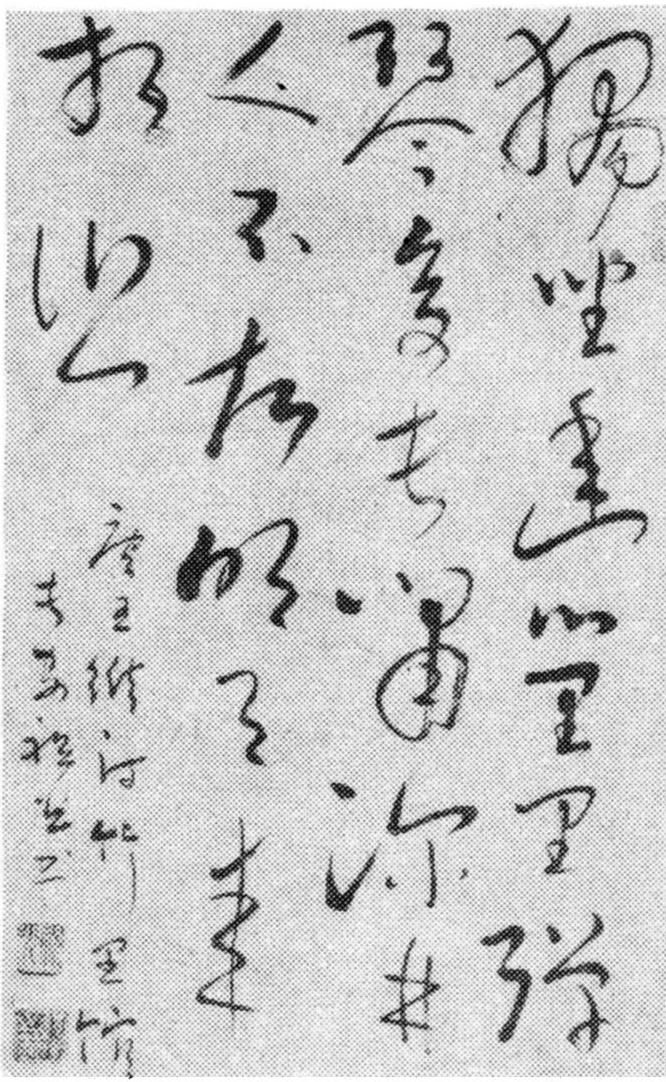 獨坐幽篁里彈
琴復長嘯深林
人不知明月來
相照
唐王維詩竹里館